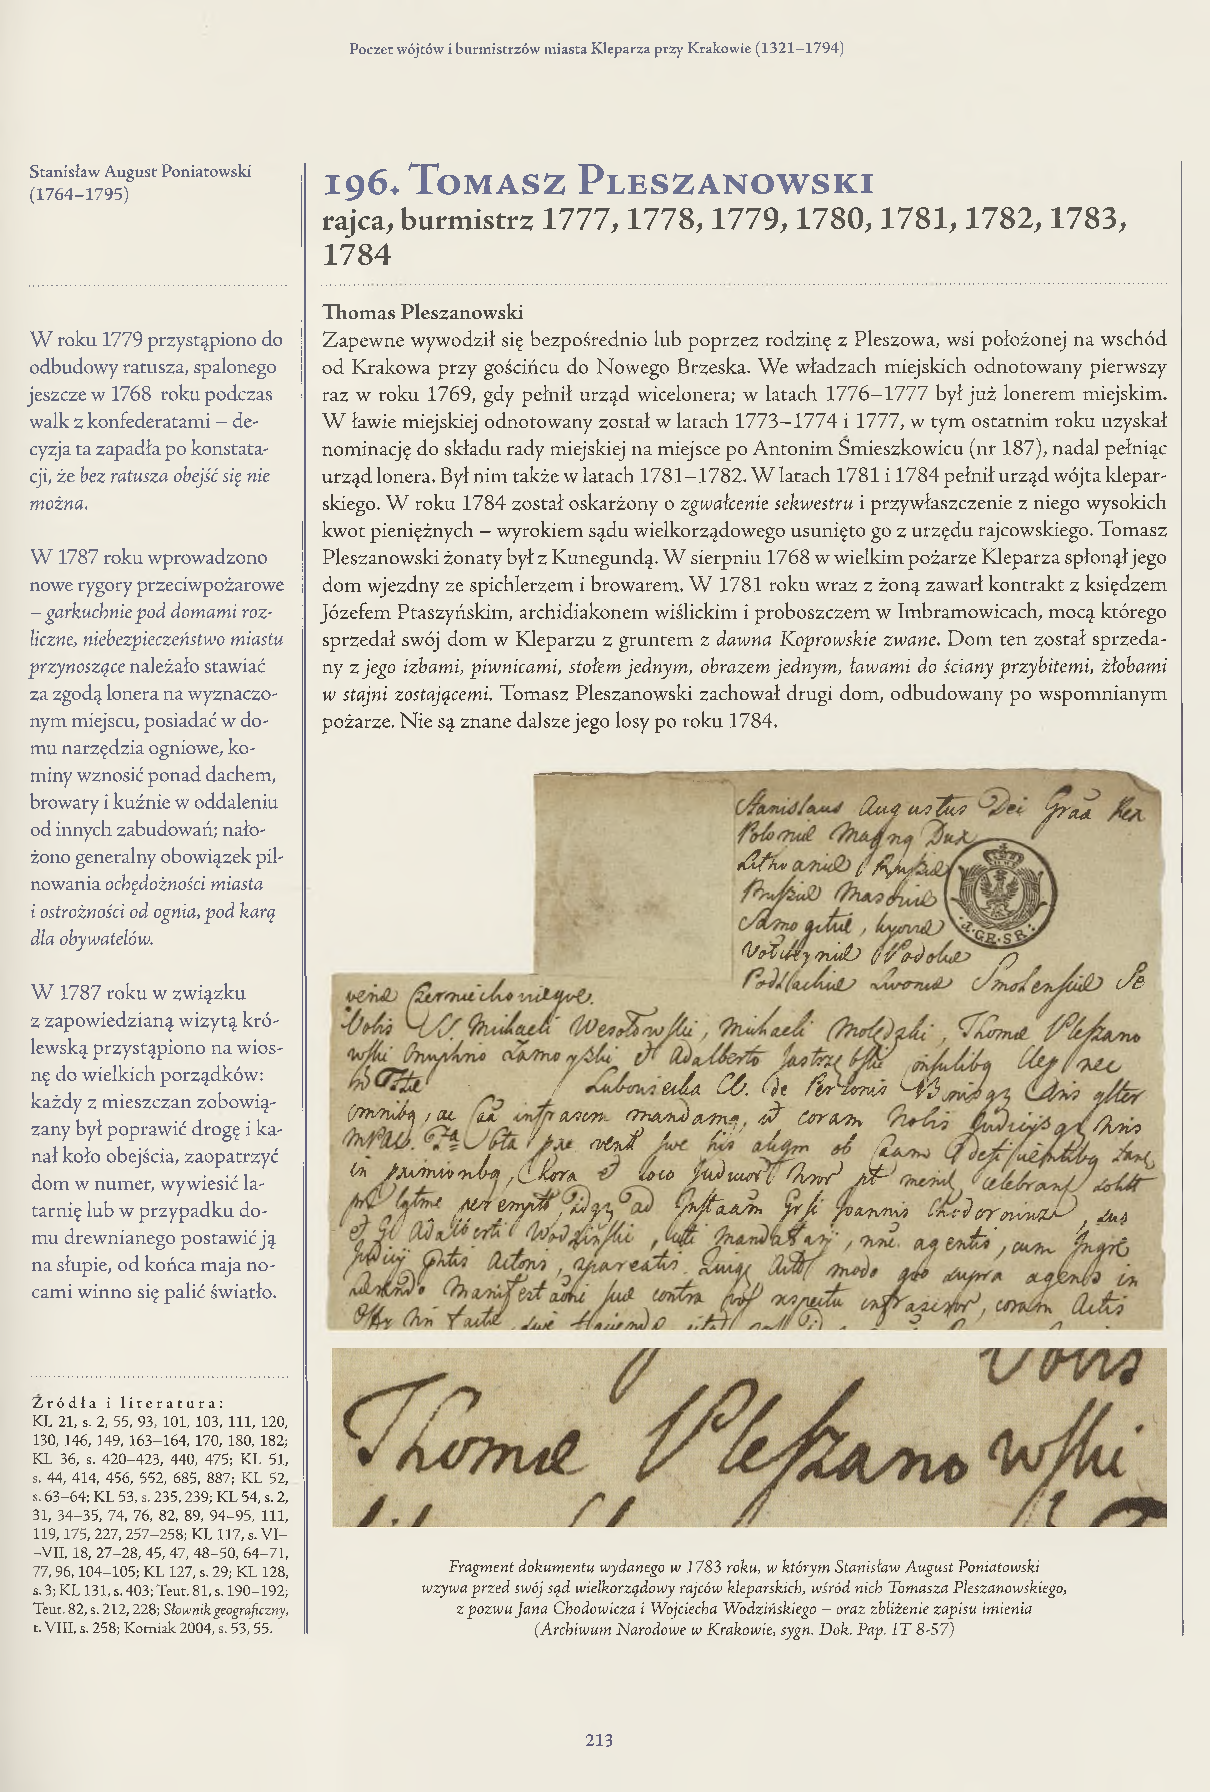 Poczet wójtów i burmistrzów miasta Kleparza przy Krakowie (1321–1794)
Stanisław August Poniatowski
(1764–1795)
W roku 1779 przystąpiono do
odbudowy ratusza, spalonego
jeszcze w 1768 roku podczas
walk z konfederatami – de-
cyzja ta zapadła po konstata-
cji, że bez ratusza obejść się nie
można.
W 1787 roku wprowadzono
nowe rygory przeciwpożarowe
– garkuchnie pod domami roz-
liczne, niebezpieczeństwo miastu
przynoszące należało stawiać
za zgodą lonera na wyznaczo-
nym miejscu, posiadać w do-
mu narzędzia ogniowe, ko-
miny wznosić ponad dachem,
browary i kuźnie w oddaleniu
od innych zabudowań; nało-
żono generalny obowiązek pil-
nowania ochędożności miasta
i ostrożności od ognia, pod karą
dla obywatelów.
W 1787 roku w związku
z zapowiedzianą wizytą kró-
lewską przystąpiono na wios-
nę do wielkich porządków:
każdy z mieszczan zobowią-
zany był poprawić drogę i ka-
nał koło obejścia, zaopatrzyć
dom w numer, wywiesić la-
tarnię lub w przypadku do-
mu drewnianego postawić ją
na słupie, od końca maja no-
cami winno się palić światło.
Źródła i literatura:
KL 21, s. 2, 55, 93, 101, 103, 111, 120,
130, 146, 149, 163–164, 170, 180, 182;
KL 36, s. 420–423, 440, 475; KL 51,
s. 44, 414, 456, 552, 685, 887; KL 52,
s. 63–64; KL 53, s. 235, 239; KL 54, s. 2,
31, 34–35, 74, 76, 82, 89, 94–95, 111,
119, 175, 227, 257–258; KL 117, s. VI–
–VII, 18, 27–28, 45, 47, 48–50, 64–71,
77, 96, 104–105; KL 127, s. 29; KL 128,
s. 3; KL 131, s. 403; Teut. 81, s. 190–192;
Teut. 82, s. 212, 228; Słownik geograficzny,
t. VIII, s. 258; Komiak 2004, s. 53, 55.
196. Tomasz Pleszanowski
rajca, burmistrz 1777, 1778, 1779, 1780, 1781, 1782, 1783,
1784
Thomas Pleszanowski
Zapewne wywodził się bezpośrednio lub poprzez rodzinę z Pleszowa, wsi położonej na wschód
od Krakowa przy gościńcu do Nowego Brzeska. We władzach miejskich odnotowany pierwszy
raz w roku 1769, gdy pełnił urząd wicelonera; w latach 1776–1777 był już lonerem miejskim.
W ławie miejskiej odnotowany został w latach 1773–1774 i 1777, w tym ostatnim roku uzyskał
nominację do składu rady miejskiej na miejsce po Antonim Śmieszkowicu (nr 187), nadal pełniąc
urząd lonera. Był nim także w latach 1781–1782. W latach 1781 i 1784 pełnił urząd wójta klepar-
skiego. W roku 1784 został oskarżony o zgwałcenie sekwestru i przywłaszczenie z niego wysokich
kwot pieniężnych – wyrokiem sądu wielkorządowego usunięto go z urzędu rajcowskiego. Tomasz
Pleszanowski żonaty był z Kunegundą. W sierpniu 1768 w wielkim pożarze Kleparza spłonął jego
dom wjezdny ze spichlerzem i browarem. W 1781 roku wraz z żoną zawarł kontrakt z księdzem
Józefem Ptaszyńskim, archidiakonem wiślickim i proboszczem w Imbramowicach, mocą którego
sprzedał swój dom w Kleparzu z gruntem z dawna Koprowskie zwane. Dom ten został sprzeda-
ny z jego izbami, piwnicami, stołem jednym, obrazem jednym, ławami do ściany przybitemi, żłobami
w stajni zostającemi. Tomasz Pleszanowski zachował drugi dom, odbudowany po wspomnianym
pożarze. Nie są znane dalsze jego losy po roku 1784.
Stanislaus Augustus Dei Graa Rex
Poloniae Magnq Dux
Lithvaniae Russiae
Prussiae Masoviae
Samogitiae, Kyoviae
Volhyniae Podoliae
Podlachiae Livoniae Smolensciae Se
veriae Czerniechoviaeqve.
Thomae Pleszanowski
Vobis
Fragment dokumentu wydanego w 1783 roku, w którym Stanisław August Poniatowski
wzywa przed swój sąd wielkorządowy rajców kleparskich, wśród nich Tomasza Pleszanowskiego,
z pozwu Jana Chodowicza i Wojciecha Wodzińskiego – oraz zbliżenie zapisu imienia
(Archiwum Narodowe w Krakowie, sygn. Dok. Pap. IT 8-57)
213